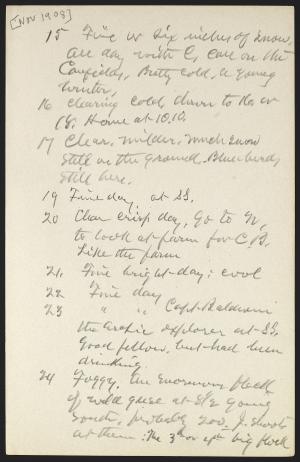 [NOV 1908]
15 Five or six inches of snow,
all day with C, call on the
Caufields, Pretty cold, a young
winter.
16 Clearing cold, down to 16 or
18. Home at 10.10.
17 Clear, milder, much snow
still on the ground. Bluebirds
still here.
19 Fine day, at SS.
20 Clear crisp day, Go to N,
to look at farm for C.B.
Like the farm
21, Fine bright day; cool
22 Fine day
23 " " Capt. Baldwin
the arctic explorer at SS.
Good fellow, but had been
drinking.
24 Foggy. An enormous flock
of wild geese at 8 1/2 going
south, probably 200, J. shoots
at them: The 3rd or 4th big flock